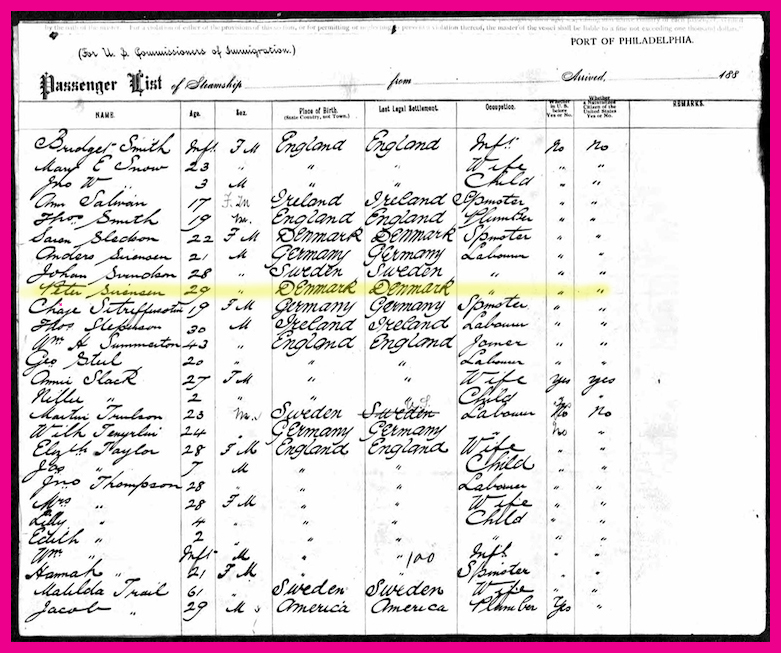 (For U. S. Commissioners of Immigration.)
PORT OF PHILADELPHIA.
Passenger List of Steamship from Arrived, 188
NAME. Age. Sex. Place of Birth. (State Country, not Town.) Last Legal Settlement. Occupation. Whether in U. S. before Yes or No. Whether a Naturalized Citizen of the United States Yes or No. REMARKS.
Bridget Smith Inft. F M England England Inft. No No
Mary E Snow 23 " " " Wife " "
Jno W " 3 M " " Child " "
Ann 17 F. M Ireland Ireland Spinster " "
Thos Smith 19 M. England England Plumber " "
22 F M Denmark Denmark Spinster " "
Anders Sorensen 21 M Germany Germany Labourer " "
Johan 28 " Sweden Sweden " " "
Peter Sorensen 29 " Denmark Denmark " " "
19 F M Germany Germany Spinster " "
Thos 30 M Ireland Ireland Labourer " "
Wm H Summerton 43 " England England Joiner " "
Geo 20 " " " Labourer " "
Annie Slack 27 F M " " Wife Yes Yes
Nellie " 2 " " " Child " "
Martin Trulson 23 M. Sweden Sweden U. S. Labourer No No
Wilh 24 " Germany Germany " No "
Elizth Taylor 28 F M England England Wife " "
Jas " 7 M " " Child " "
Jno Thompson 28 " " " Labourer " "
Mrs " 28 F M " " Wife " "
Lilly " 4 " " " Child " "
Edith " 2 " " " " " "
Wm " Inft M " " 100 Inft. " "
Hannah " 21 F M " " Spinster " "
Matilda Trail 61 " Sweden Sweden Wife " "
Jacob " 29 M America America Plumber Yes "